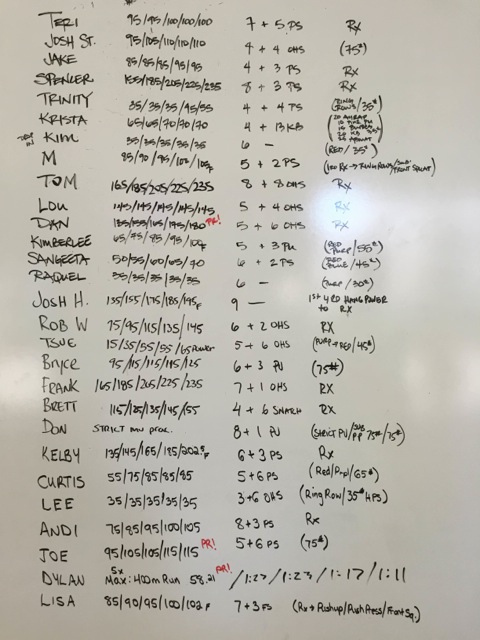 TERI 95/95/100/100/100 7 + 5 PS Rx
JOSH ST. 95/105/110/110/110 4 + 4 OHS (75#)
JAKE 85/85/95/95/95 4 + 3 PS Rx
SPENCER 155/185/205/225/235 8 + 3 PS Rx
TRINITY 35/35/35/45/55 4 + 4 PS (RING ROWS/35#)
KRISTA 65/65/70/70/70 4 + 13 KB
KIM 35/35/35/35/35 6 – (RED/35#)
M 85/90/95/105/105F 5 + 2 PS
TOM 165/185/205/225/235 8 + 8 OHS Rx
LOU 145/145/145/145/145 5 + 4 OHS Rx
DAN 135/155/165/175/180 PR! 5 + 6 OHS Rx
KIMBERLEE 65/75/85/95/107 5 + 3 PU (RED PURP/55#)
SANGEETA 50/55/60/65/70 6 + 2 PS
RAQUEL 35/35/35/35/35 6 – (PURP/30#)
JOSH H. 135/155/175/185/195F 9 – 1st 4 RD HANG POWER to RX
ROB W 75/95/115/135/145 6 + 2 OHS RX
TSUE 15/35/55/55/65 POWER 5 + 6 OHS (PURP+RED/45#)
Bryce 95/115/115/145/125 6 + 3 PU (75#)
FRANK 165/185/205/225/235 7 + 1 OHS RX
BRETT 115/125/135/145/155 4 + 6 SNATCH RX
DON STRICT MU PROG. 8 + 1 PU (STRICT PU/SUB PP 75#/75#)
KELBY 135/145/165/185/202.5F 6 + 3 PS Rx
CURTIS 55/75/85/85/85 5 + 6 PS (Red/Prpl/65#)
LEE 35/35/35/35/35 3 + 6 OHS (Ring Row/35# HPS)
ANDI 75/85/95/100/105 8 + 3 PS Rx
JOE 95/105/105/115/115 PR! 5 + 6 PS (75#)
DYLAN 5x Max: 400m Run 58.21 PR! /1:27/1:23/1:17/1:11
LISA 85/90/95/100/102F 7 + 3 FS (Rx → Pushup/Push Press/Front Sq.)